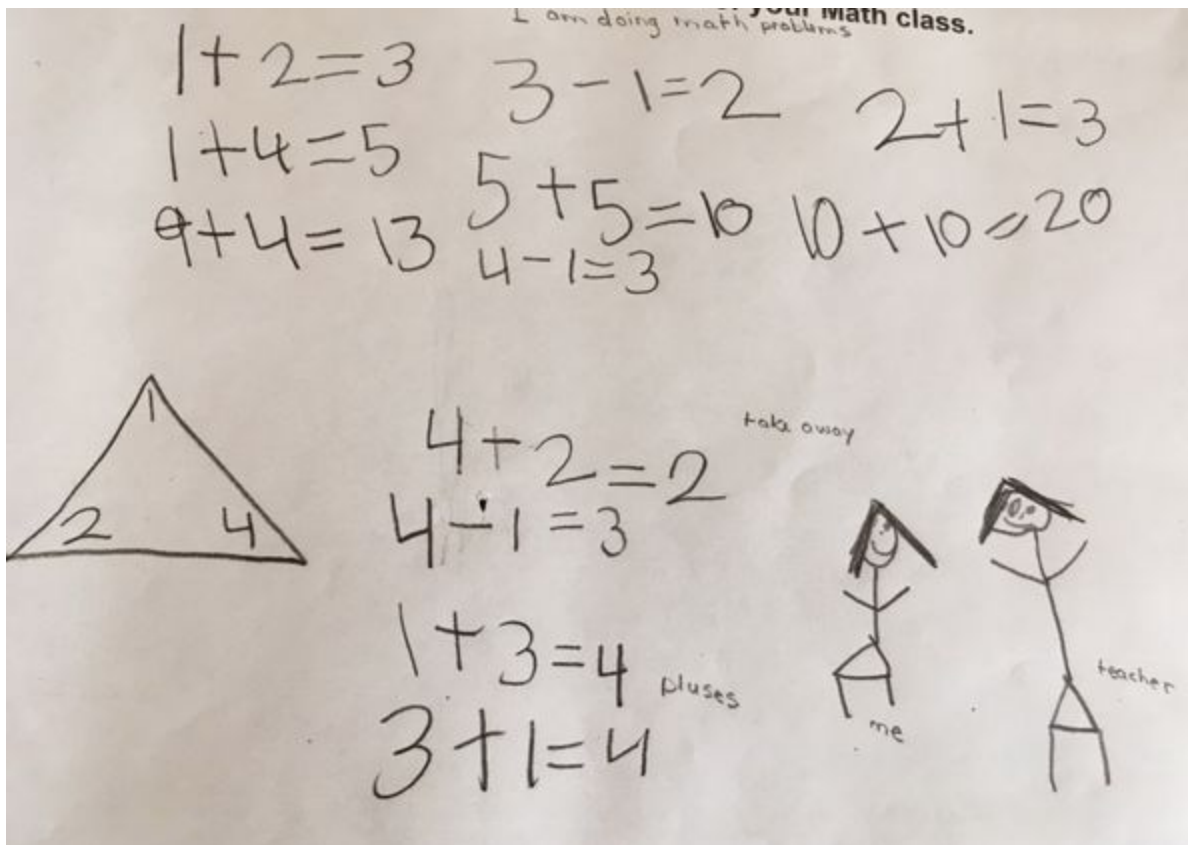 your Math class.
I am doing math problems
1 + 2 = 3
3 - 1 = 2
2 + 1 = 3
1 + 4 = 5
5 + 5 = 10
10 + 10 = 20
9 + 4 = 13
4 - 1 = 3
1
2 4
4 + 2 = 2
take away
4 - 1 = 3
1 + 3 = 4
pluses
3 + 1 = 4
me
teacher